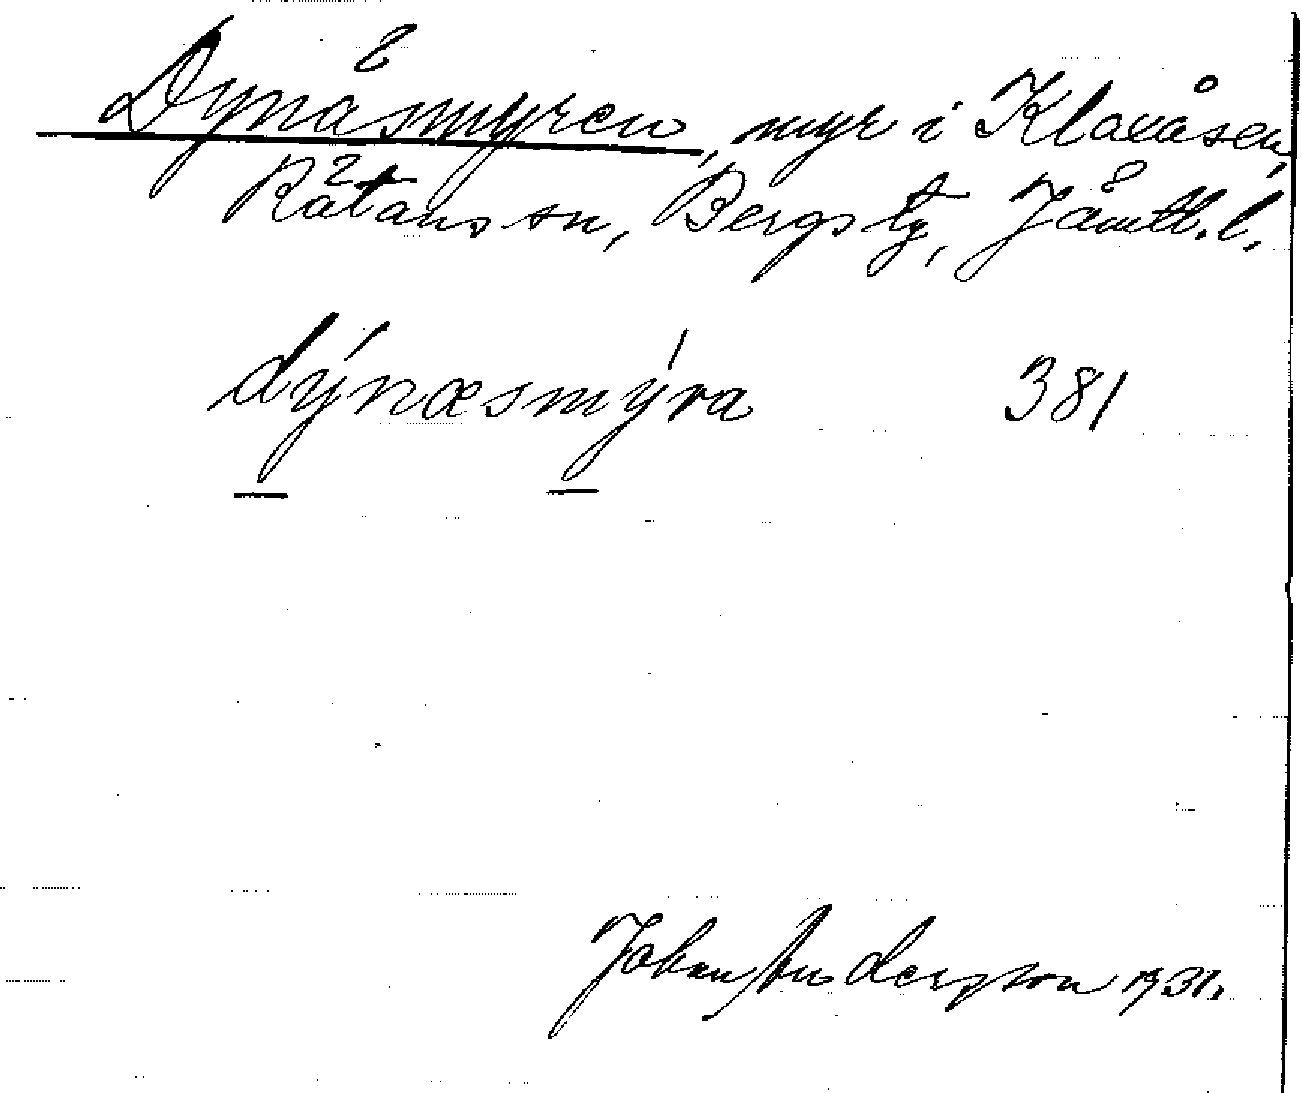 Dynäsmyren, myr i Klaxåsen,
Rätans sn, Bergs tg, Jämtl. l.
dýnæsmýra 381
Johan Anderson 1931.